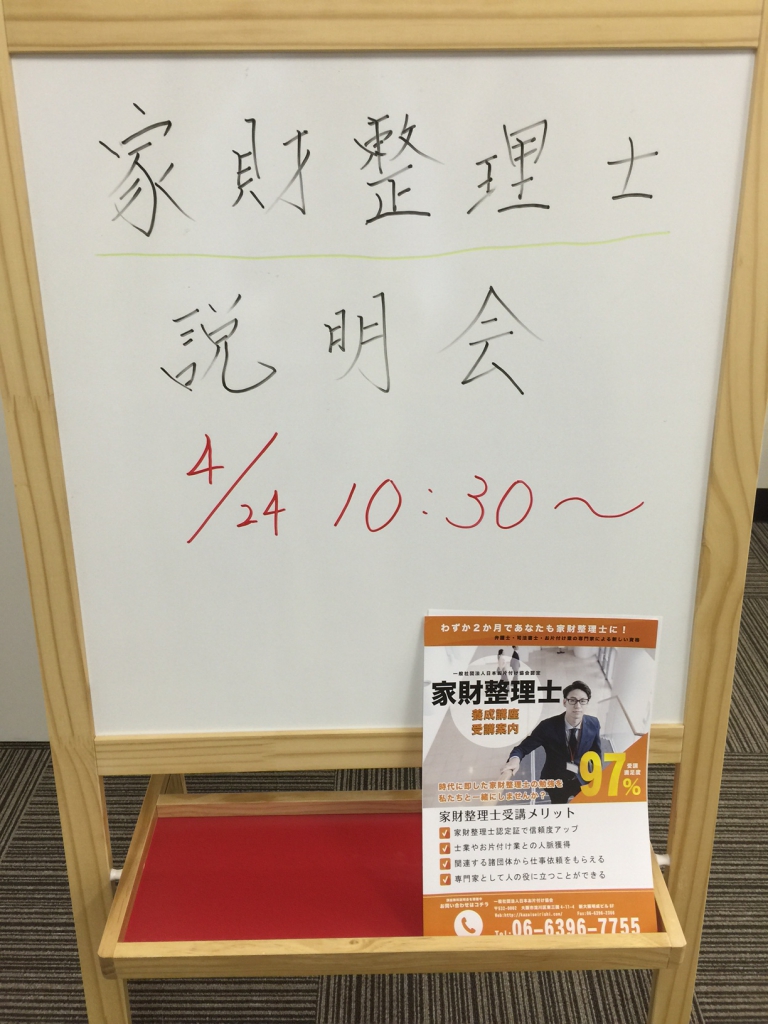 家財整理士
説明会
4/24 10:30～
わずか2か月であなたも家財整理士に!
弁護士・司法書士・お片付け業の専門家による新しい資格
一般社団法人日本お片付け協会認定
家財整理士
養成講座
受講案内
受講
満足度
97%
時代に即した家財整理士の勉強を
私たちと一緒にしませんか?
家財整理士受講メリット
家財整理士認定証で信頼度アップ
士業やお片付け業との人脈獲得
関連する諸団体から仕事依頼をもらえる
専門家として人の役に立つことができる
お問い合わせはコチラ
一般社団法人日本お片付け協会
Fax:06-6396-7756
Tel:06-6396-7755